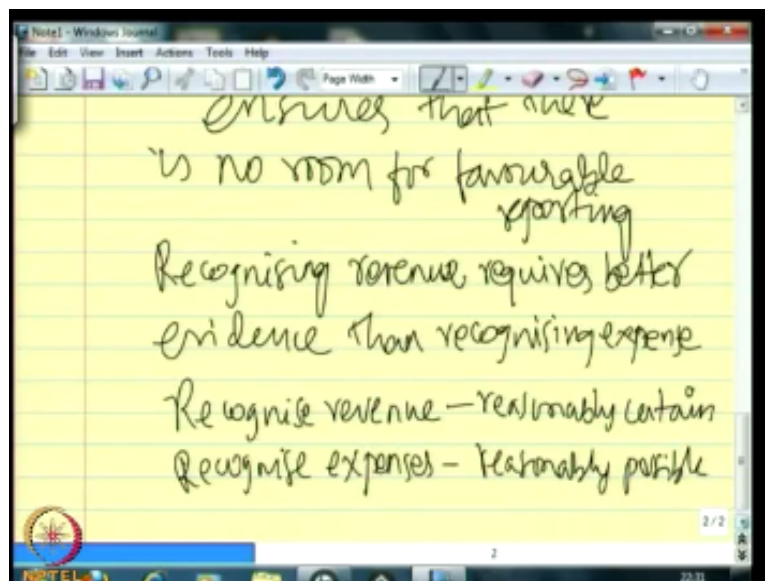 Note1 - Windows Journal
File Edit View Insert Actions Tools Help
Page Width
ensures that there
is no room for favourable
reporting
Recognising revenue requires better
evidence than recognising expense
Recognise revenue - reasonably certain
Recognise expenses - reasonably possible
2/2
2
NPTEL
22:31